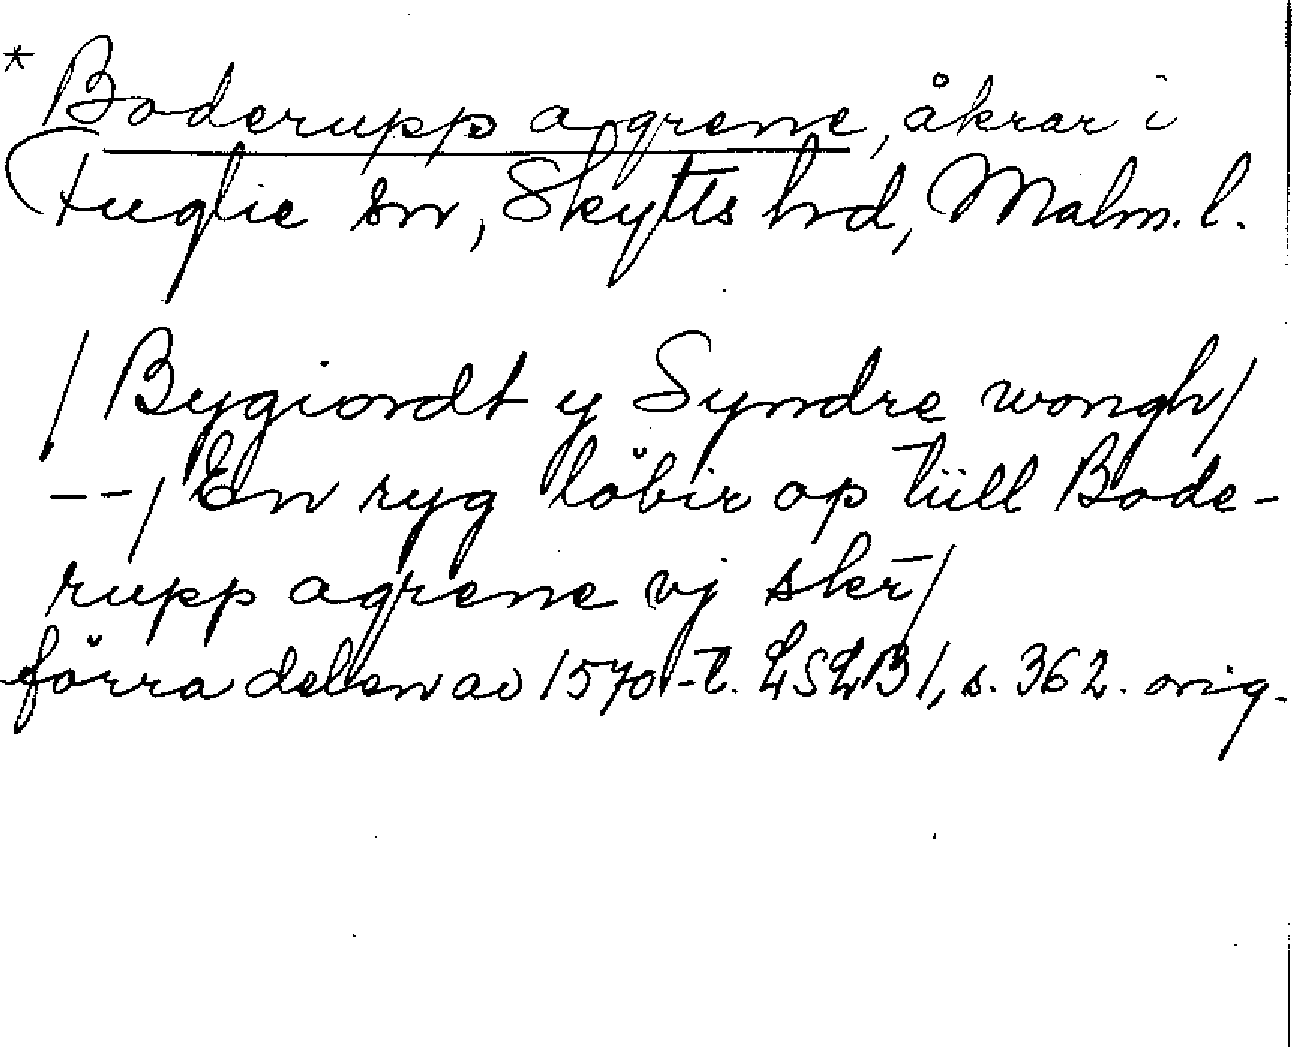 * Boderupp agrene, åkrar i
Fuglie sn, Skytts hrd, Malm. l.
/ Bygiordt y Syndre wongh/
--/ En ryg löbir op tiill Bode-
rupp agrene vj skr̄/
förra delen av 1570-t. LSLB1, s. 362. orig.